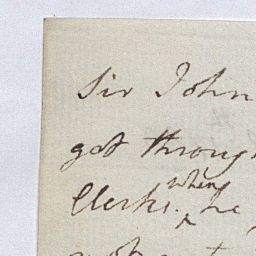 Sir John
got throug
Clerks. when he